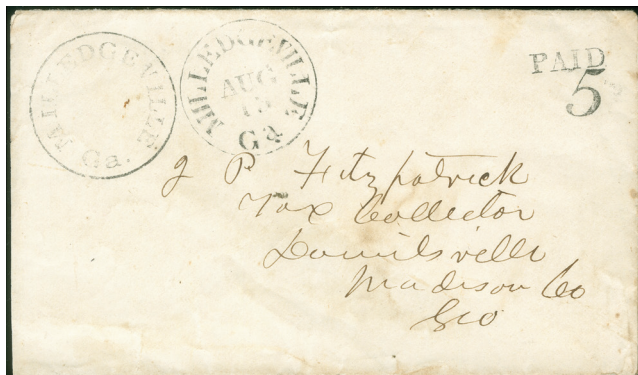 MILLEDGEVILLE
Ga.
MILLEDGEVILLE
AUG
15
Ga
PAID
5
J P Fitzpatrick
Tax Collector
Danielsville
Madison Co
Geo